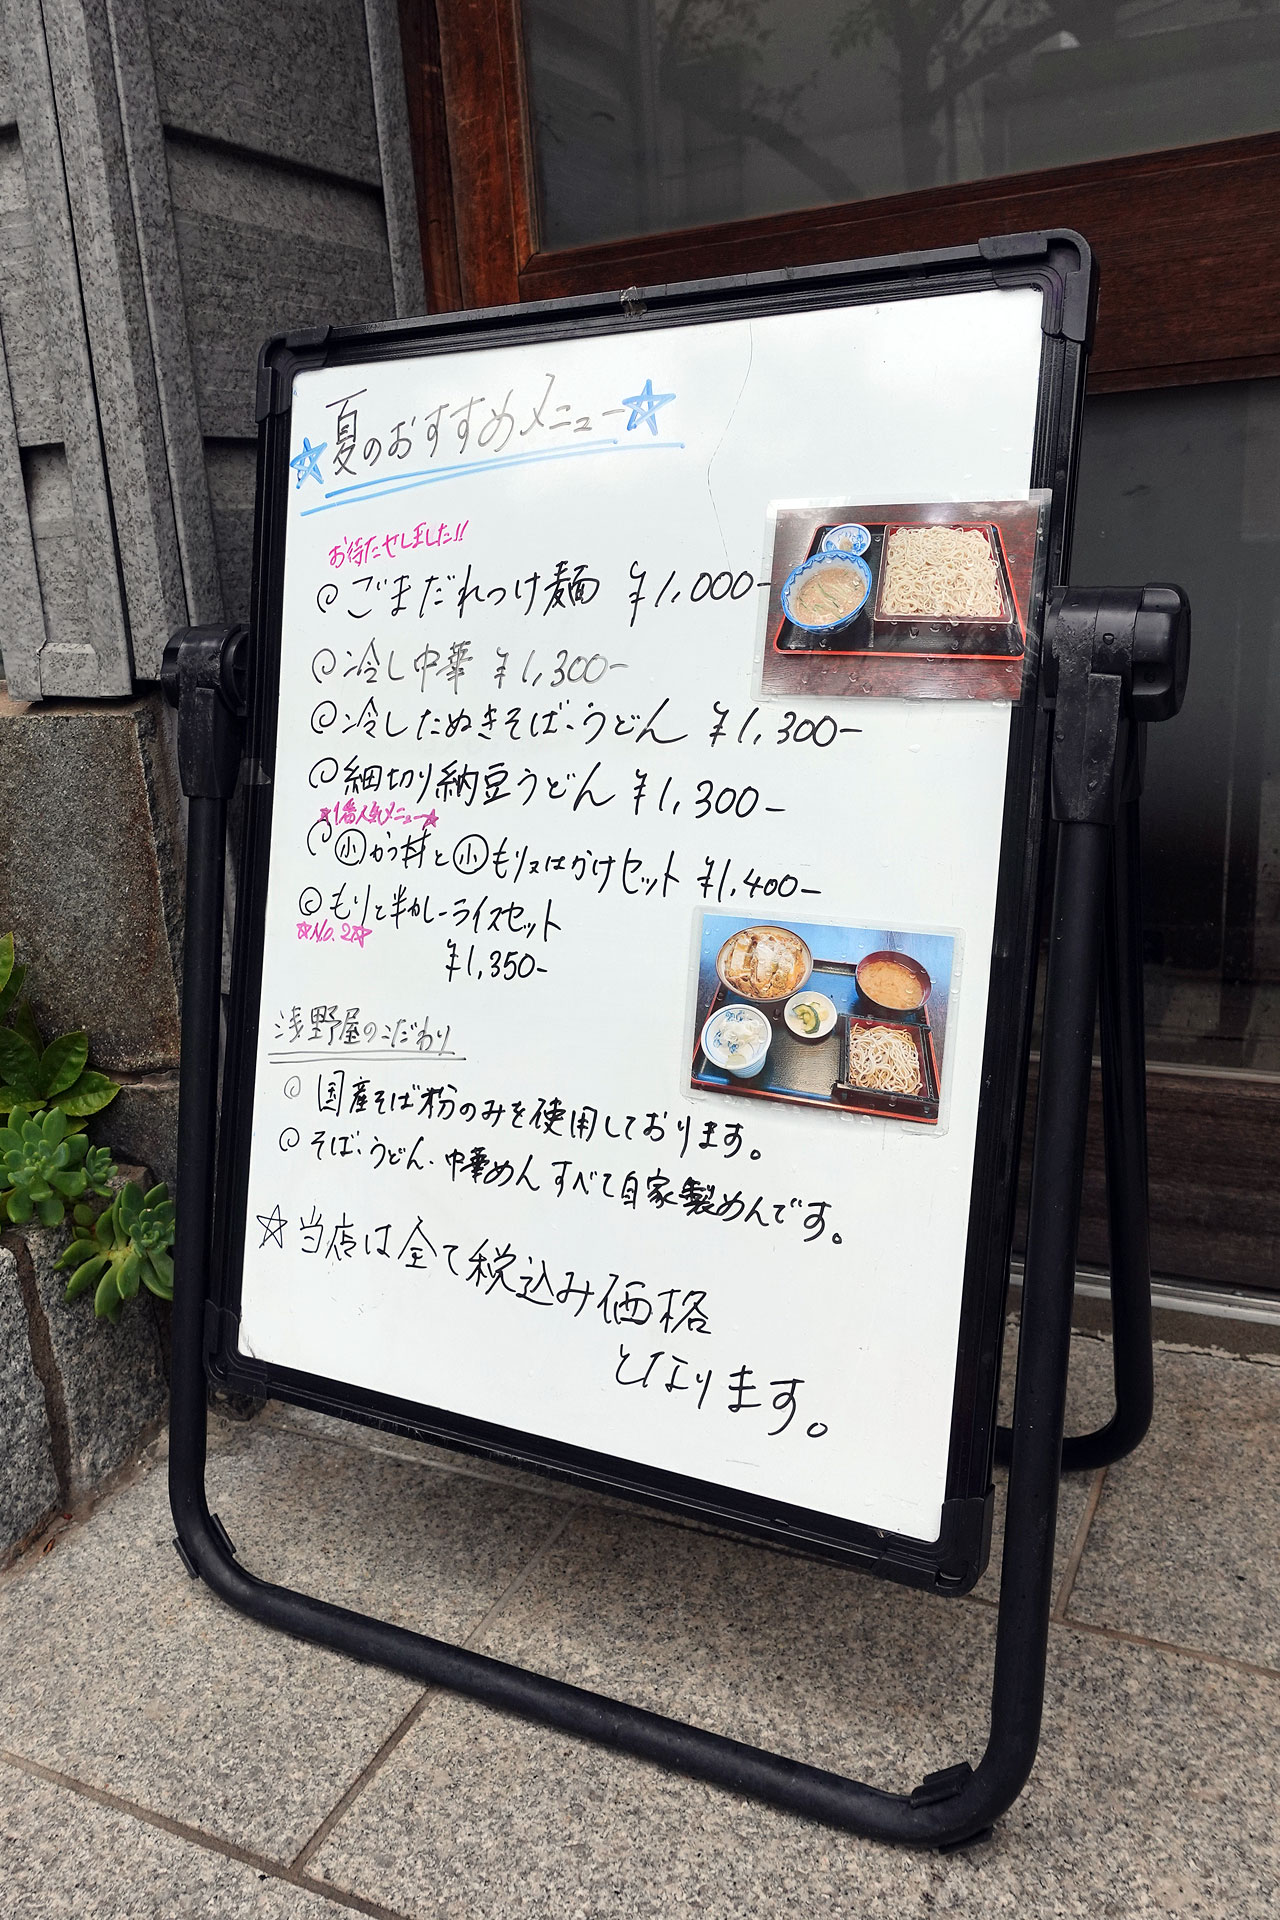 ☆夏のおすすめメニュー☆
お待たせしました!!
◎ごまだれつけ麺 ¥1,000-
◎冷し中華 ¥1,300-
◎冷したぬきそば・うどん ¥1,300-
◎細切り納豆うどん ¥1,300-
☆1番人気メニュー☆
◎㊙小かつ丼と小もり又はかけセット ¥1,400-
◎もりと半カレーライスセット
☆No.2☆
¥1,350-
浅野屋のこだわり
◎国産そば粉のみを使用しております。
◎そば、うどん、中華めんすべて自家製めんです。
☆当店は全て税込み価格
となります。